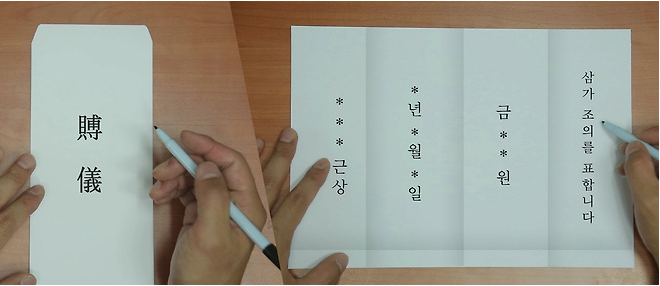 賻儀
삼가 조의를 표합니다
금 * * 원
*년 *월 *일
* * * 근상